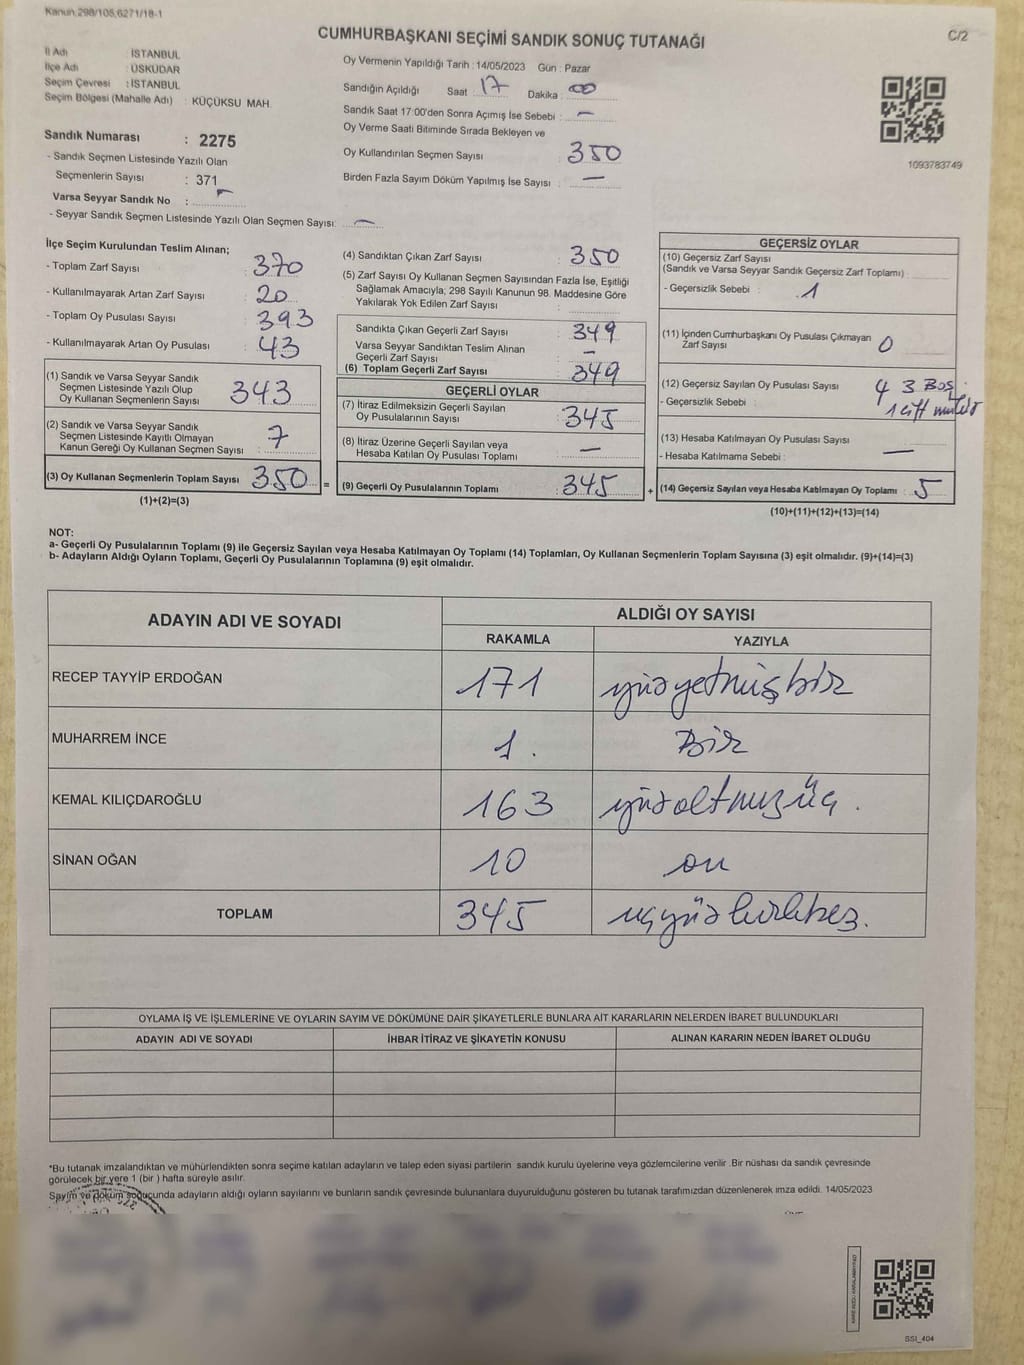 Kanun.298/105,6271/18-1
C/2
CUMHURBAŞKANI SEÇİMİ SANDIK SONUÇ TUTANAĞI
İl Adı : İSTANBUL
İlçe Adı : ÜSKÜDAR
Seçim Çevresi : İSTANBUL
Seçim Bölgesi (Mahalle Adı) : KÜÇÜKSU MAH.
Sandık Numarası : 2275
- Sandık Seçmen Listesinde Yazılı Olan
Seçmenlerin Sayısı : 371
Varsa Seyyar Sandık No : –
- Seyyar Sandık Seçmen Listesinde Yazılı Olan Seçmen Sayısı: –
Oy Vermenin Yapıldığı Tarih : 14/05/2023 Gün : Pazar
Sandığın Açıldığı Saat : 17 Dakika : 00
Sandık Saat 17:00'den Sonra Açımış İse Sebebi : –
Oy Verme Saati Bitiminde Sırada Bekleyen ve
Oy Kullandırılan Seçmen Sayısı : 350
Birden Fazla Sayım Döküm Yapılmış İse Sayısı : –
1093783749
İlçe Seçim Kurulundan Teslim Alınan;
- Toplam Zarf Sayısı : 370
- Kullanılmayarak Artan Zarf Sayısı : 20
- Toplam Oy Pusulası Sayısı : 393
- Kullanılmayarak Artan Oy Pusulası : 43
(1) Sandık ve Varsa Seyyar Sandık
Seçmen Listesinde Yazılı Olup
Oy Kullanan Seçmenlerin Sayısı : 343
(2) Sandık ve Varsa Seyyar Sandık
Seçmen Listesinde Kayıtlı Olmayan
Kanun Gereği Oy Kullanan Seçmen Sayısı : 7
(3) Oy Kullanan Seçmenlerin Toplam Sayısı : 350
(1)+(2)=(3)
=
(4) Sandıktan Çıkan Zarf Sayısı : 350
(5) Zarf Sayısı Oy Kullanan Seçmen Sayısından Fazla İse, Eşitliği
Sağlamak Amacıyla; 298 Sayılı Kanunun 98. Maddesine Göre
Yakılarak Yok Edilen Zarf Sayısı :
Sandıkta Çıkan Geçerli Zarf Sayısı : 349
Varsa Seyyar Sandıktan Teslim Alınan
Geçerli Zarf Sayısı : –
(6) Toplam Geçerli Zarf Sayısı : 349
GEÇERLİ OYLAR
(7) İtiraz Edilmeksizin Geçerli Sayılan
Oy Pusulalarının Sayısı : 345
(8) İtiraz Üzerine Geçerli Sayılan veya
Hesaba Katılan Oy Pusulası Toplamı : –
(9) Geçerli Oy Pusulalarının Toplamı : 345
+
GEÇERSİZ OYLAR
(10) Geçersiz Zarf Sayısı
(Sandık ve Varsa Seyyar Sandık Geçersiz Zarf Toplamı) :
- Geçersizlik Sebebi : 1
(11) İçinden Cumhurbaşkanı Oy Pusulası Çıkmayan
Zarf Sayısı : 0
(12) Geçersiz Sayılan Oy Pusulası Sayısı : 4 3 Boş
- Geçersizlik Sebebi : 1 çift mühür
(13) Hesaba Katılmayan Oy Pusulası Sayısı :
- Hesaba Katılmama Sebebi : –
(14) Geçersiz Sayılan veya Hesaba Katılmayan Oy Toplamı : 5
(10)+(11)+(12)+(13)=(14)
NOT:
a- Geçerli Oy Pusulalarının Toplamı (9) ile Geçersiz Sayılan veya Hesaba Katılmayan Oy Toplamı (14) Toplamları, Oy Kullanan Seçmenlerin Toplam Sayısına (3) eşit olmalıdır. (9)+(14)=(3)
b- Adayların Aldığı Oyların Toplamı, Geçerli Oy Pusulalarının Toplamına (9) eşit olmalıdır.
ADAYIN ADI VE SOYADI ALDIĞI OY SAYISI
RAKAMLA YAZIYLA
RECEP TAYYİP ERDOĞAN 171 yüzyetmişbir
MUHARREM İNCE 1. Bir
KEMAL KILIÇDAROĞLU 163 yüzaltmışüç.
SİNAN OĞAN 10 on
TOPLAM 345 üçyüzkırkbeş.
OYLAMA İŞ VE İŞLEMLERİNE VE OYLARIN SAYIM VE DÖKÜMÜNE DAİR ŞİKAYETLERLE BUNLARA AİT KARARLARIN NELERDEN İBARET BULUNDUKLARI
ADAYIN ADI VE SOYADI İHBAR İTİRAZ VE ŞİKAYETİN KONUSU ALINAN KARARIN NEDEN İBARET OLDUĞU
*Bu tutanak imzalandıktan ve mühürlendikten sonra seçime katılan adayların ve talep eden siyasi partilerin sandık kurulu üyelerine veya gözlemcilerine verilir .Bir nüshası da sandık çevresinde
görülecek bir yere 1 (bir ) hafta süreyle asılır.
Sayım ve döküm sonucunda adayların aldığı oyların sayılarını ve bunların sandık çevresinde bulunanlara duyurulduğunu gösteren bu tutanak tarafımızdan düzenlenerek imza edildi. 14/05/2023
SSI_404